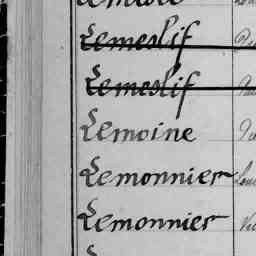 Lemeslif
Lemeslif
Lemoine
Lemonnier
Lemonnier